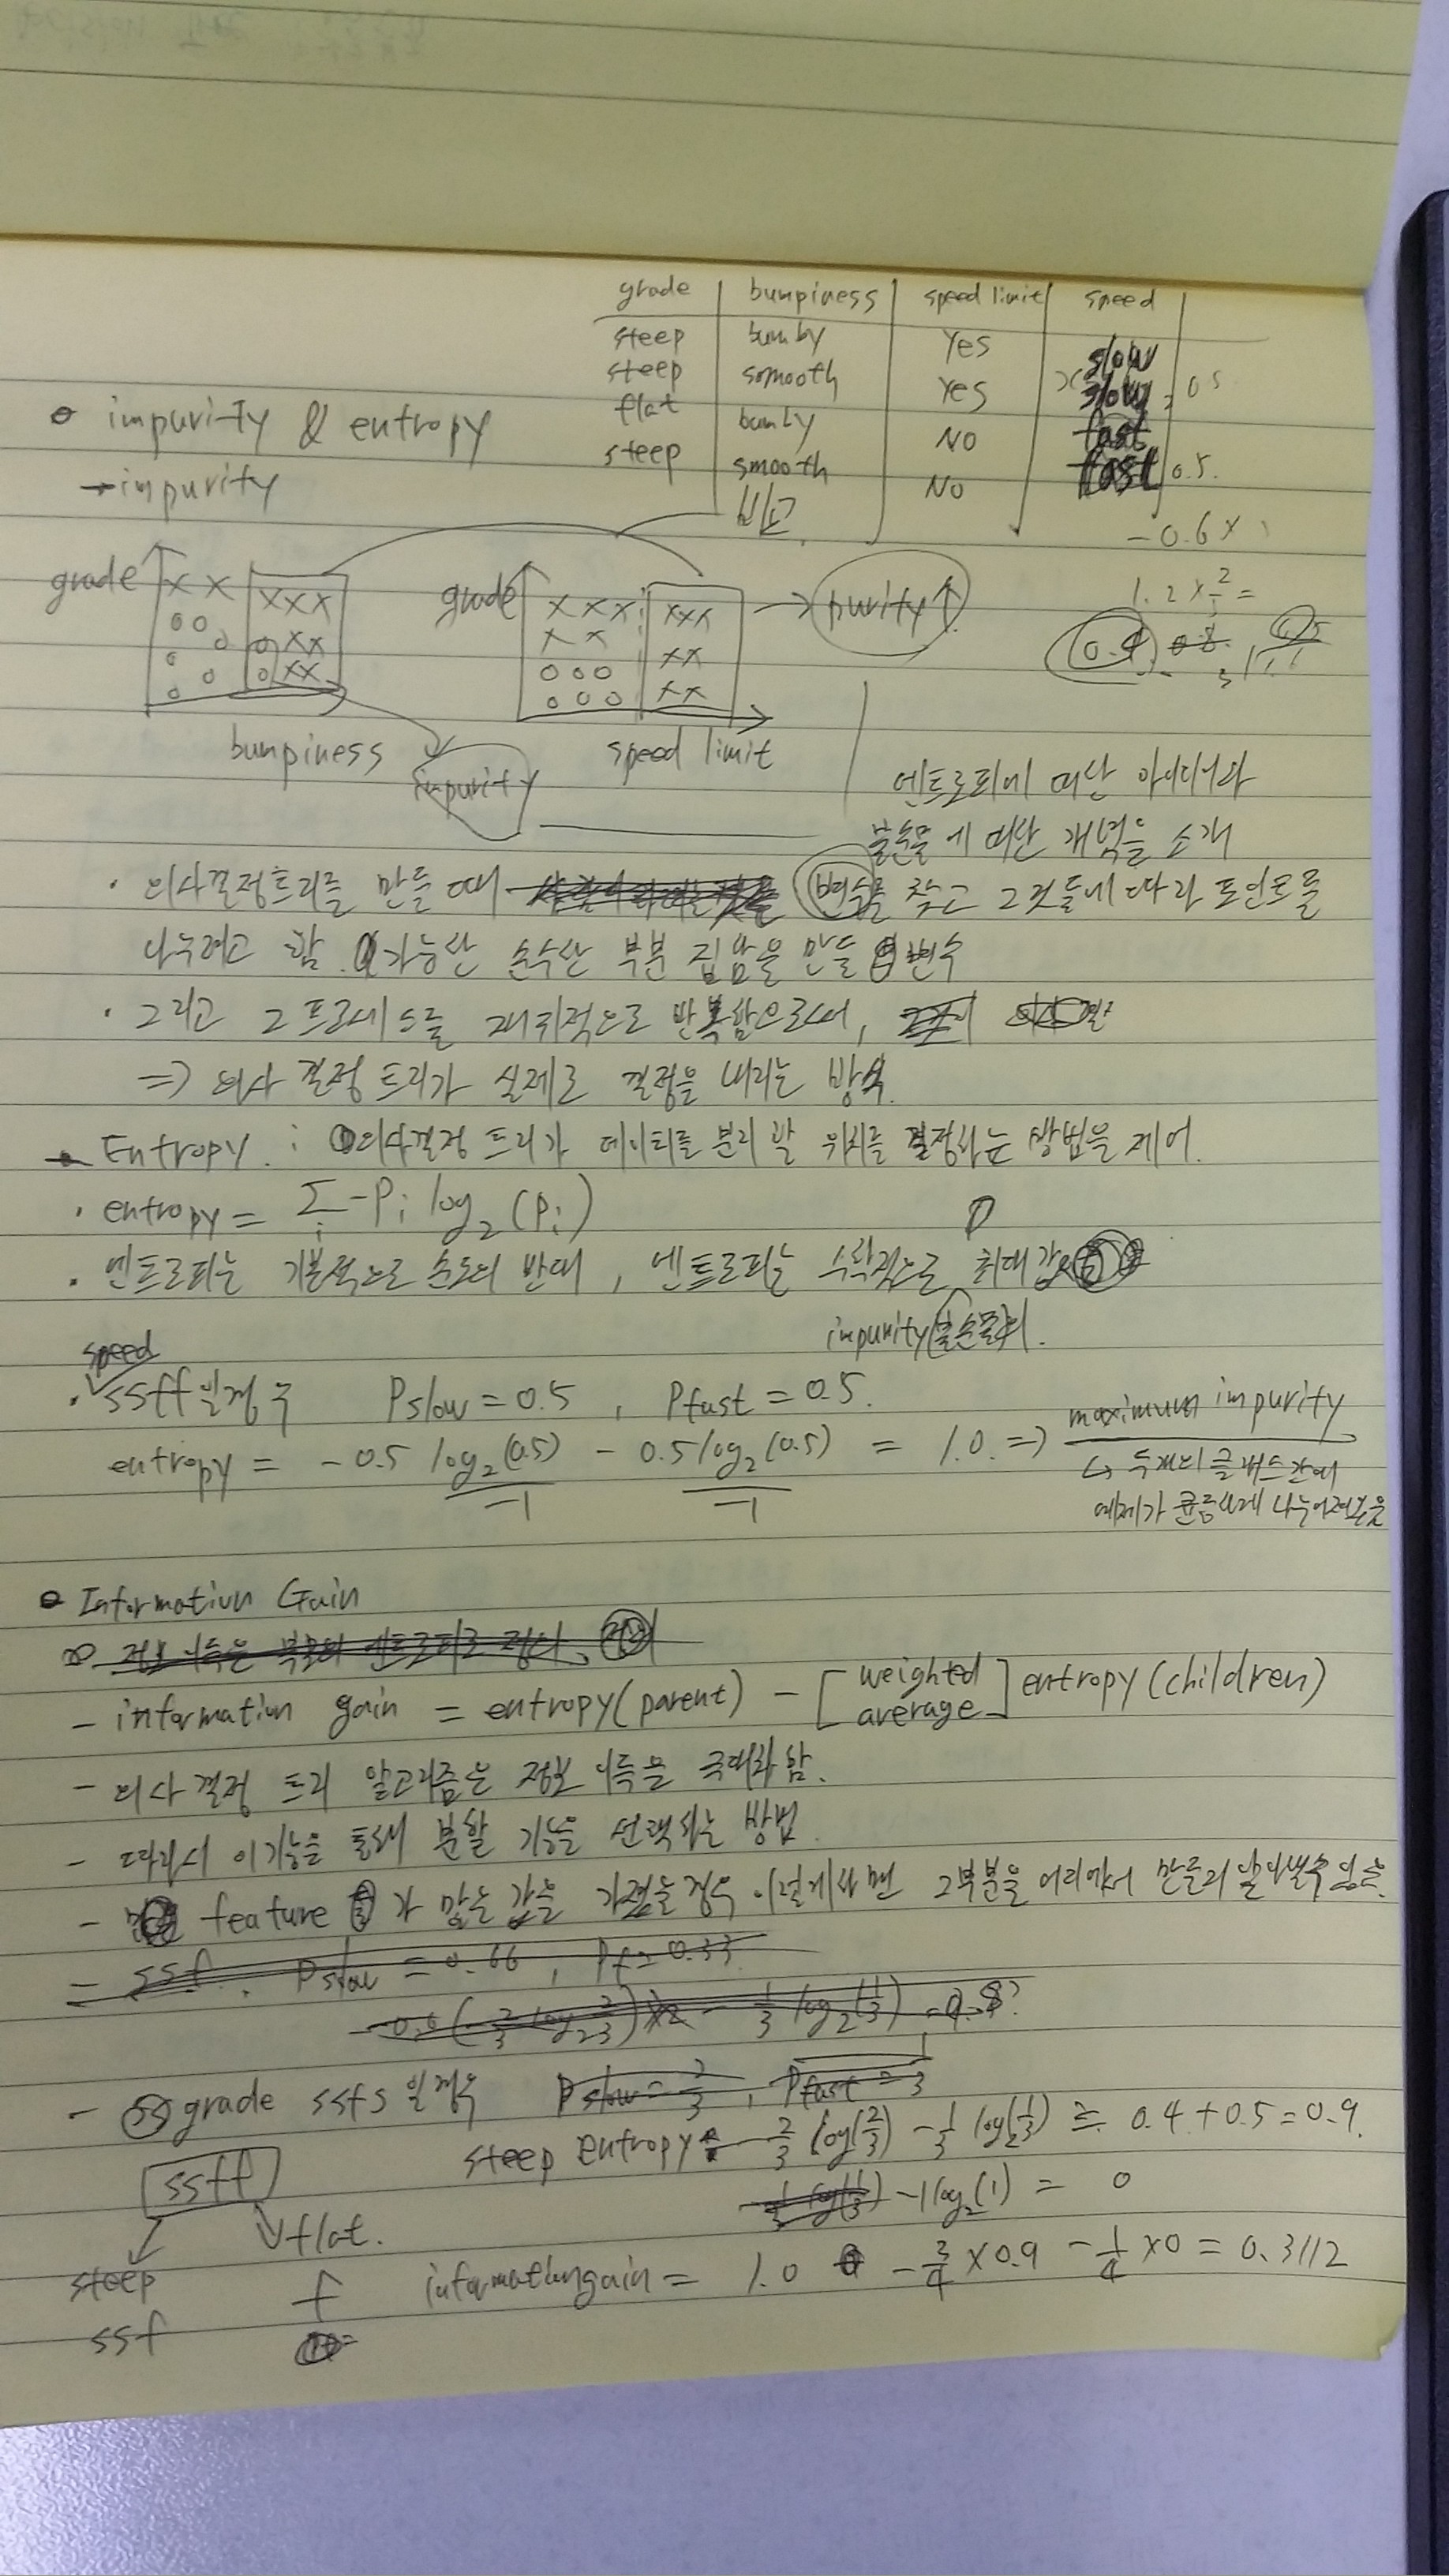 grade bumpiness speed limit speed
steep bumby Yes slow
steep somooth Yes slow 0.5
flat bumby NO fast
steep smooth No fast 0.5.
impurity & entropy
→ impurity
비교
-0.6 x
1.2 x
grade x x xxx
grade x x x xxx → purity ↑
bumpiness
speed limit
impurity
엔트로피에 대한 아이디어와
불순물에 대한 개념을 소개
· 의사결정트리를 만들 때 변수를 찾고 그것들에 따라 포인트를
나누려고 함. 가능한 순수한 부분 집합을 만들 변수
· 그리고 그 프로세스를 재귀적으로 반복함으로써,
=> 의사 결정 트리가 실제로 결정을 내리는 방식.
Entropy : 의사결정 트리가 데이터를 분리 할 위치를 결정하는 방법을 제어.
· entropy = Σi -Pi log2(Pi)
· 엔트로피는 기본적으로 순도의 반대, 엔트로피는 수학적으로 최대값
impurity(불순물)의.
speed
· ssff일경우 Pslow = 0.5, Pfast = 0.5.
entropy = -0.5 log2(0.5) - 0.5 log2(0.5) = 1.0. => maximum impurity
-1 -1
↳ 두개의 클래스간에
예제가 균등하게 나누어졌을
Information Gain
- information gain = entropy(parent) - [weighted average] entropy(children)
- 의사 결정 트리 알고리즘은 정보 이득을 극대화 함.
- 따라서 이 기능을 통해 분할 기능을 선택하는 방법.
- feature 가 많은 값을 가졌을 경우 이렇게하면 그부분을 어디에서 만들지 알아낼수 있음.
- ssf. Pslow = 0.66, Pf = 0.33
- grade ssfs 일경우 Pslow = 2/3, Pfast = 1/3
steep entropy = -2/3 log(2/3) - 1/3 log2(1/3) ≅ 0.4 + 0.5 = 0.9.
ssff
-1 log2(1) = 0
flat.
steep f information gain = 1.0 - 3/4 x 0.9 - 1/4 x 0 = 0.3112
ssf